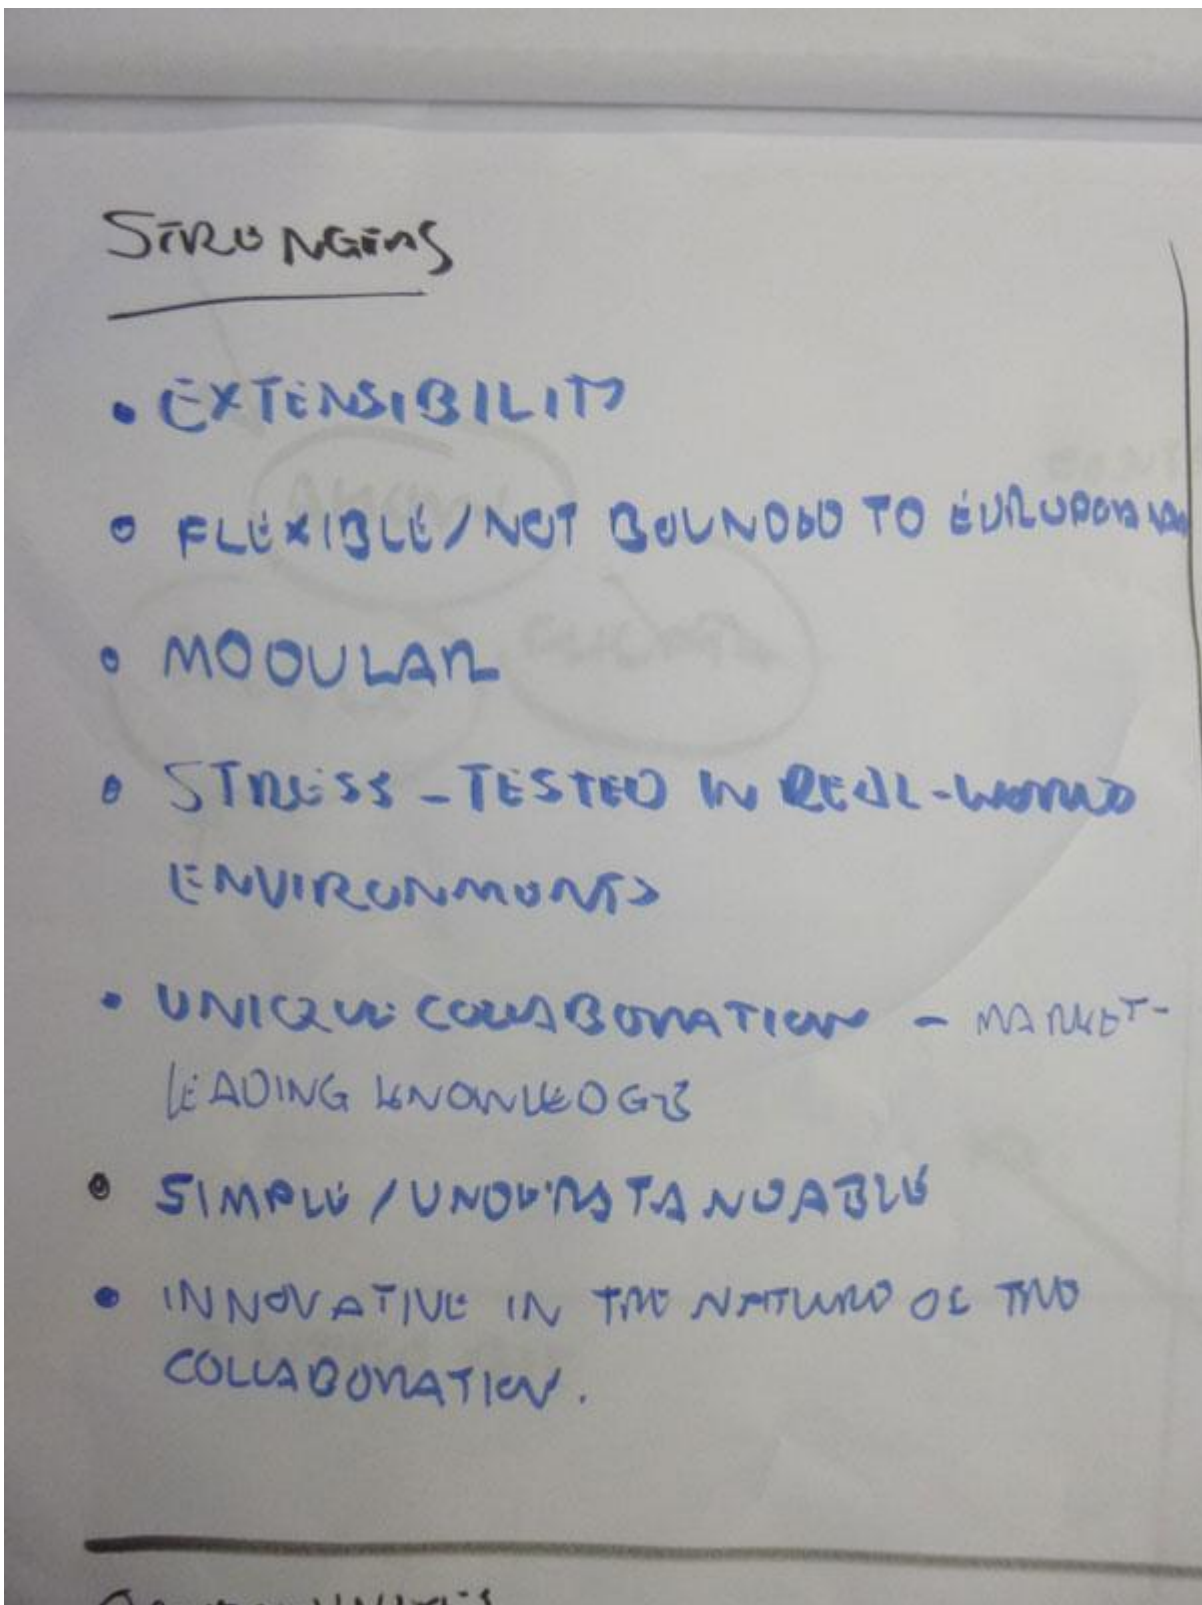 STRONGTHS
• EXTENSIBILITY
• FLEXIBLE/NOT BOUNDED TO EUROPEAN
• MODULAR
• STRESS-TESTED IN REAL-WORLD
ENVIRONMENTS
• UNIQUE COLLABORATION - MARKET-
LEADING KNOWLEDGE
• SIMPLE/UNDERSTANDABLE
• INNOVATIVE IN THE NATURE OF THE
COLLABORATION.